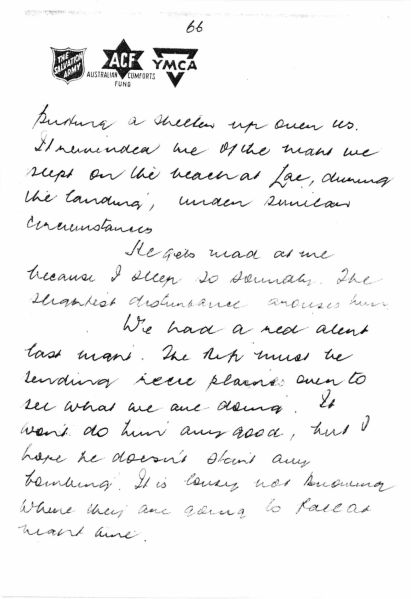 66
THE SALVATION ARMY
ACF
AUSTRALIAN COMFORTS FUND
YMCA
Putting a shelter up over us.
It reminded me of the night we
slept on the beach at Lae, during
the landing, under similar
circumstances
He gets mad at me
because I sleep so soundly. The
slightest disturbance arouses him
We had a red alert
last night. The Nip must be
sending recce planes over to
see what we are doing. It
won't do him any good, but I
hope he doesn't start any
bombing. It is lousy not knowing
where they are going to fall at
night time.